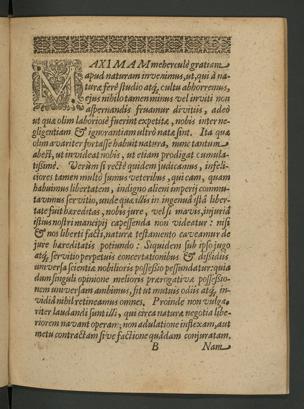 MAXIMAM mehercule gratiam
apud naturam invenimus, ut, qui à na-
tura ferè studio atq; cultu abhorremus,
ejus nihilo tamen minus vel inviti non
aspernandis fruamur divitiis, adeò
ut quæ olim laboriosè fuerint expetita, nobis inter ne-
gligentiam & ignorantiam ultrò nata sint. Ita quæ
olim avariter fortasse habuit natura, nunc tantum
abest, ut invideat nobis, ut etiam prodigat cumula-
tissimè. Verùm si rectè quidem judicamus, infeli-
ciores tamen multò sumus veteribus, qui cam, quam
habuimus libertatem, indigno alieni imperij commu-
tavimus servitio, unde quæ illis in ingenua istâ liber-
tate fuit hæreditas, nobis jure, vel si mavis, injuriâ
istius nostri mancipij capessenda non videatur: nisi
& nos liberti facti, naturæ testamento caveamur de
jure hæreditatis potiundo: Siquidem sub ipso jugo
atq; servitio perpetuis concertationibus & dissidiis
universa scientiæ nobilioris possessio pessundatur: quia
dum singuli opinione melioris prærogativæ possessio-
nem universam ambimus, fit ut mutuis odiis atq; in-
vidia nihil retineamus omnes. Proinde non vulga-
riter laudandi sunt illi, qui circa naturæ negotia libe-
riorem navant operam, non adulatione inflexam, aut
metu contractam sive factione quâdam conjuratam.
B Nam